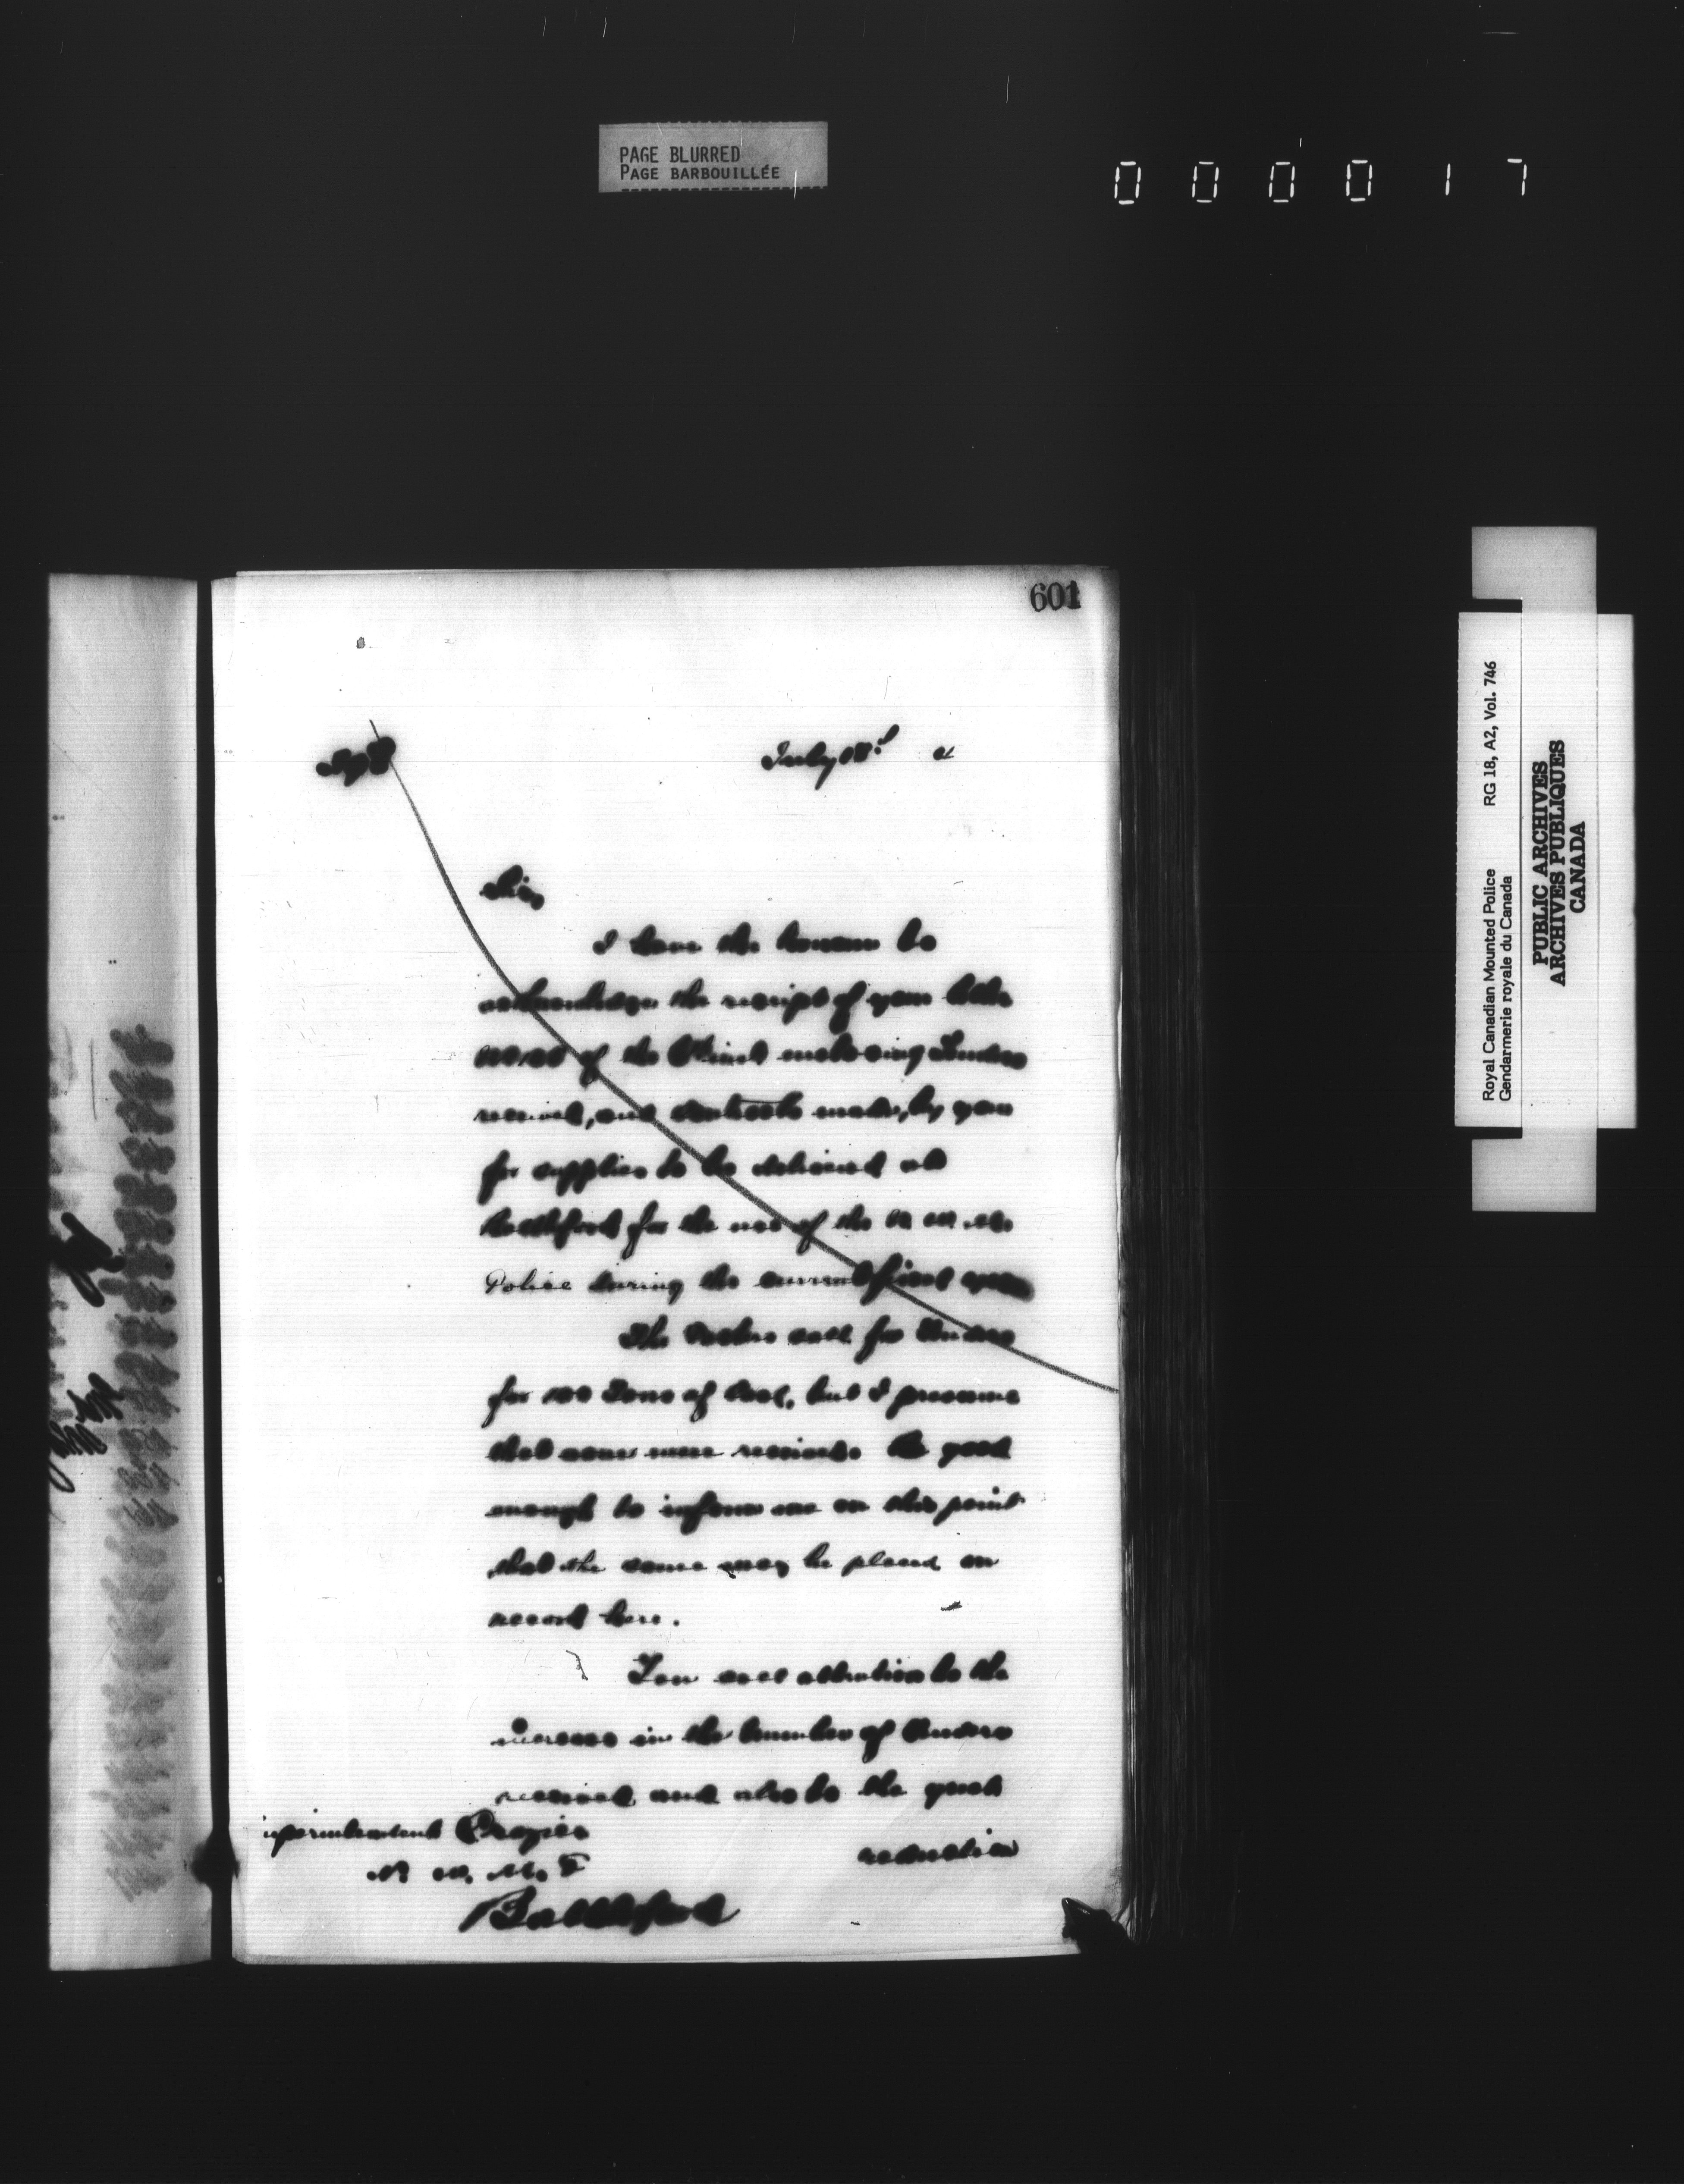 PAGE BLURRED
PAGE BARBOUILLÉE
000017
601
July
Sir
I have the honour to
acknowledge the receipt of your letter
of the inst enclosing Tenders
received, and Contracts made, by you
for supplies to be delivered at
Battleford for the use of the N. W. M.
Police during the current fiscal year
The call for Tenders
for 100 Tons of Coal, but I presume
that none were received. Be good
enough to inform me on this point
that the same may be placed on
record here.
You call attention to the
increase in the number of Tenders
received and also to the great
reduction
uperintendent Crozier
N. W. M. P
Battleford
Royal Canadian Mounted Police RG 18, A2, Vol. 746
Gendarmerie royale du Canada
PUBLIC ARCHIVES
ARCHIVES PUBLIQUES
CANADA